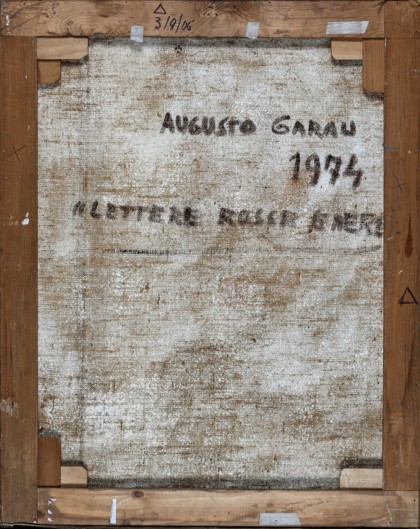 3/9/06
AUGUSTO GARAU
1974
"LETTERE ROSSE